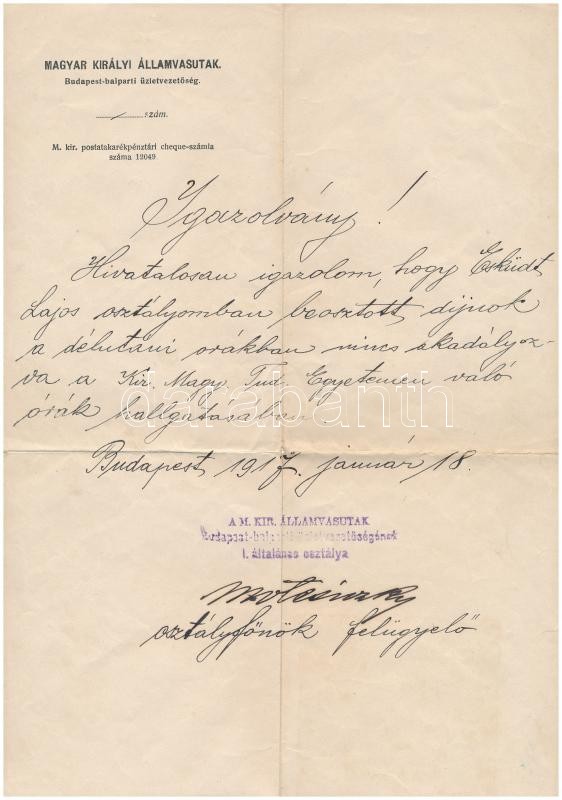 MAGYAR KIRÁLYI ÁLLAMVASUTAK.
Budapest-balparti üzletvezetőség.
szám.
M. kir. postatakarékpénztári cheque-számla
száma 12049
Igazolvány!
Hivatalosan igazolom, hogy Esküdt
Lajos osztályomban beosztott dijnok
a délutáni orákban nincs akadályoz-
va a Kir. Magy. Tud. Egyetemen való
órák hallgatásában.
Budapest, 1917. január 18.
A M. KIR. ÁLLAMVASUTAK
Budapest-balparti üzletvezetőségének
I. általános osztálya
osztályfőnök felügyelő
darabanth